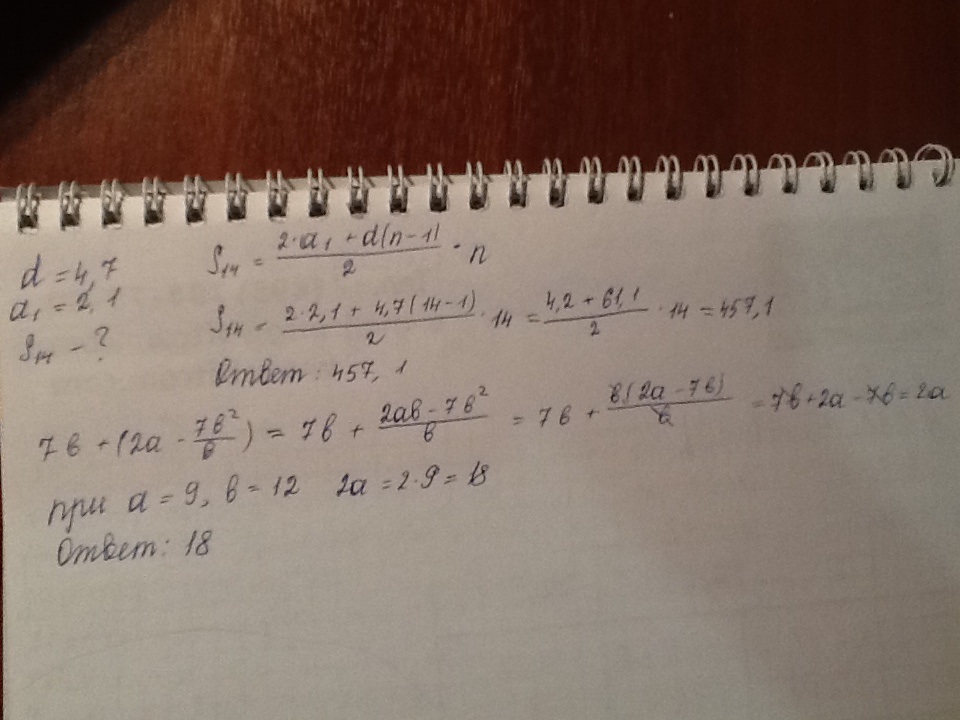 d = 4,7
a₁ = 2,1
S₁₄ - ?
S₁₄ = (2·a₁ + d(n-1))/2 · n
S₁₄ = (2·2,1 + 4,7(14-1))/2 · 14 = (4,2 + 61,1)/2 · 14 = 457,1
Ответ: 457,1
7в + (2а - 7в²/в) = 7в + (2ав - 7в²)/в = 7в + в(2а - 7в)/в = 7в + 2а - 7в = 2а
при а = 9, в = 12 2а = 2·9 = 18
Ответ: 18